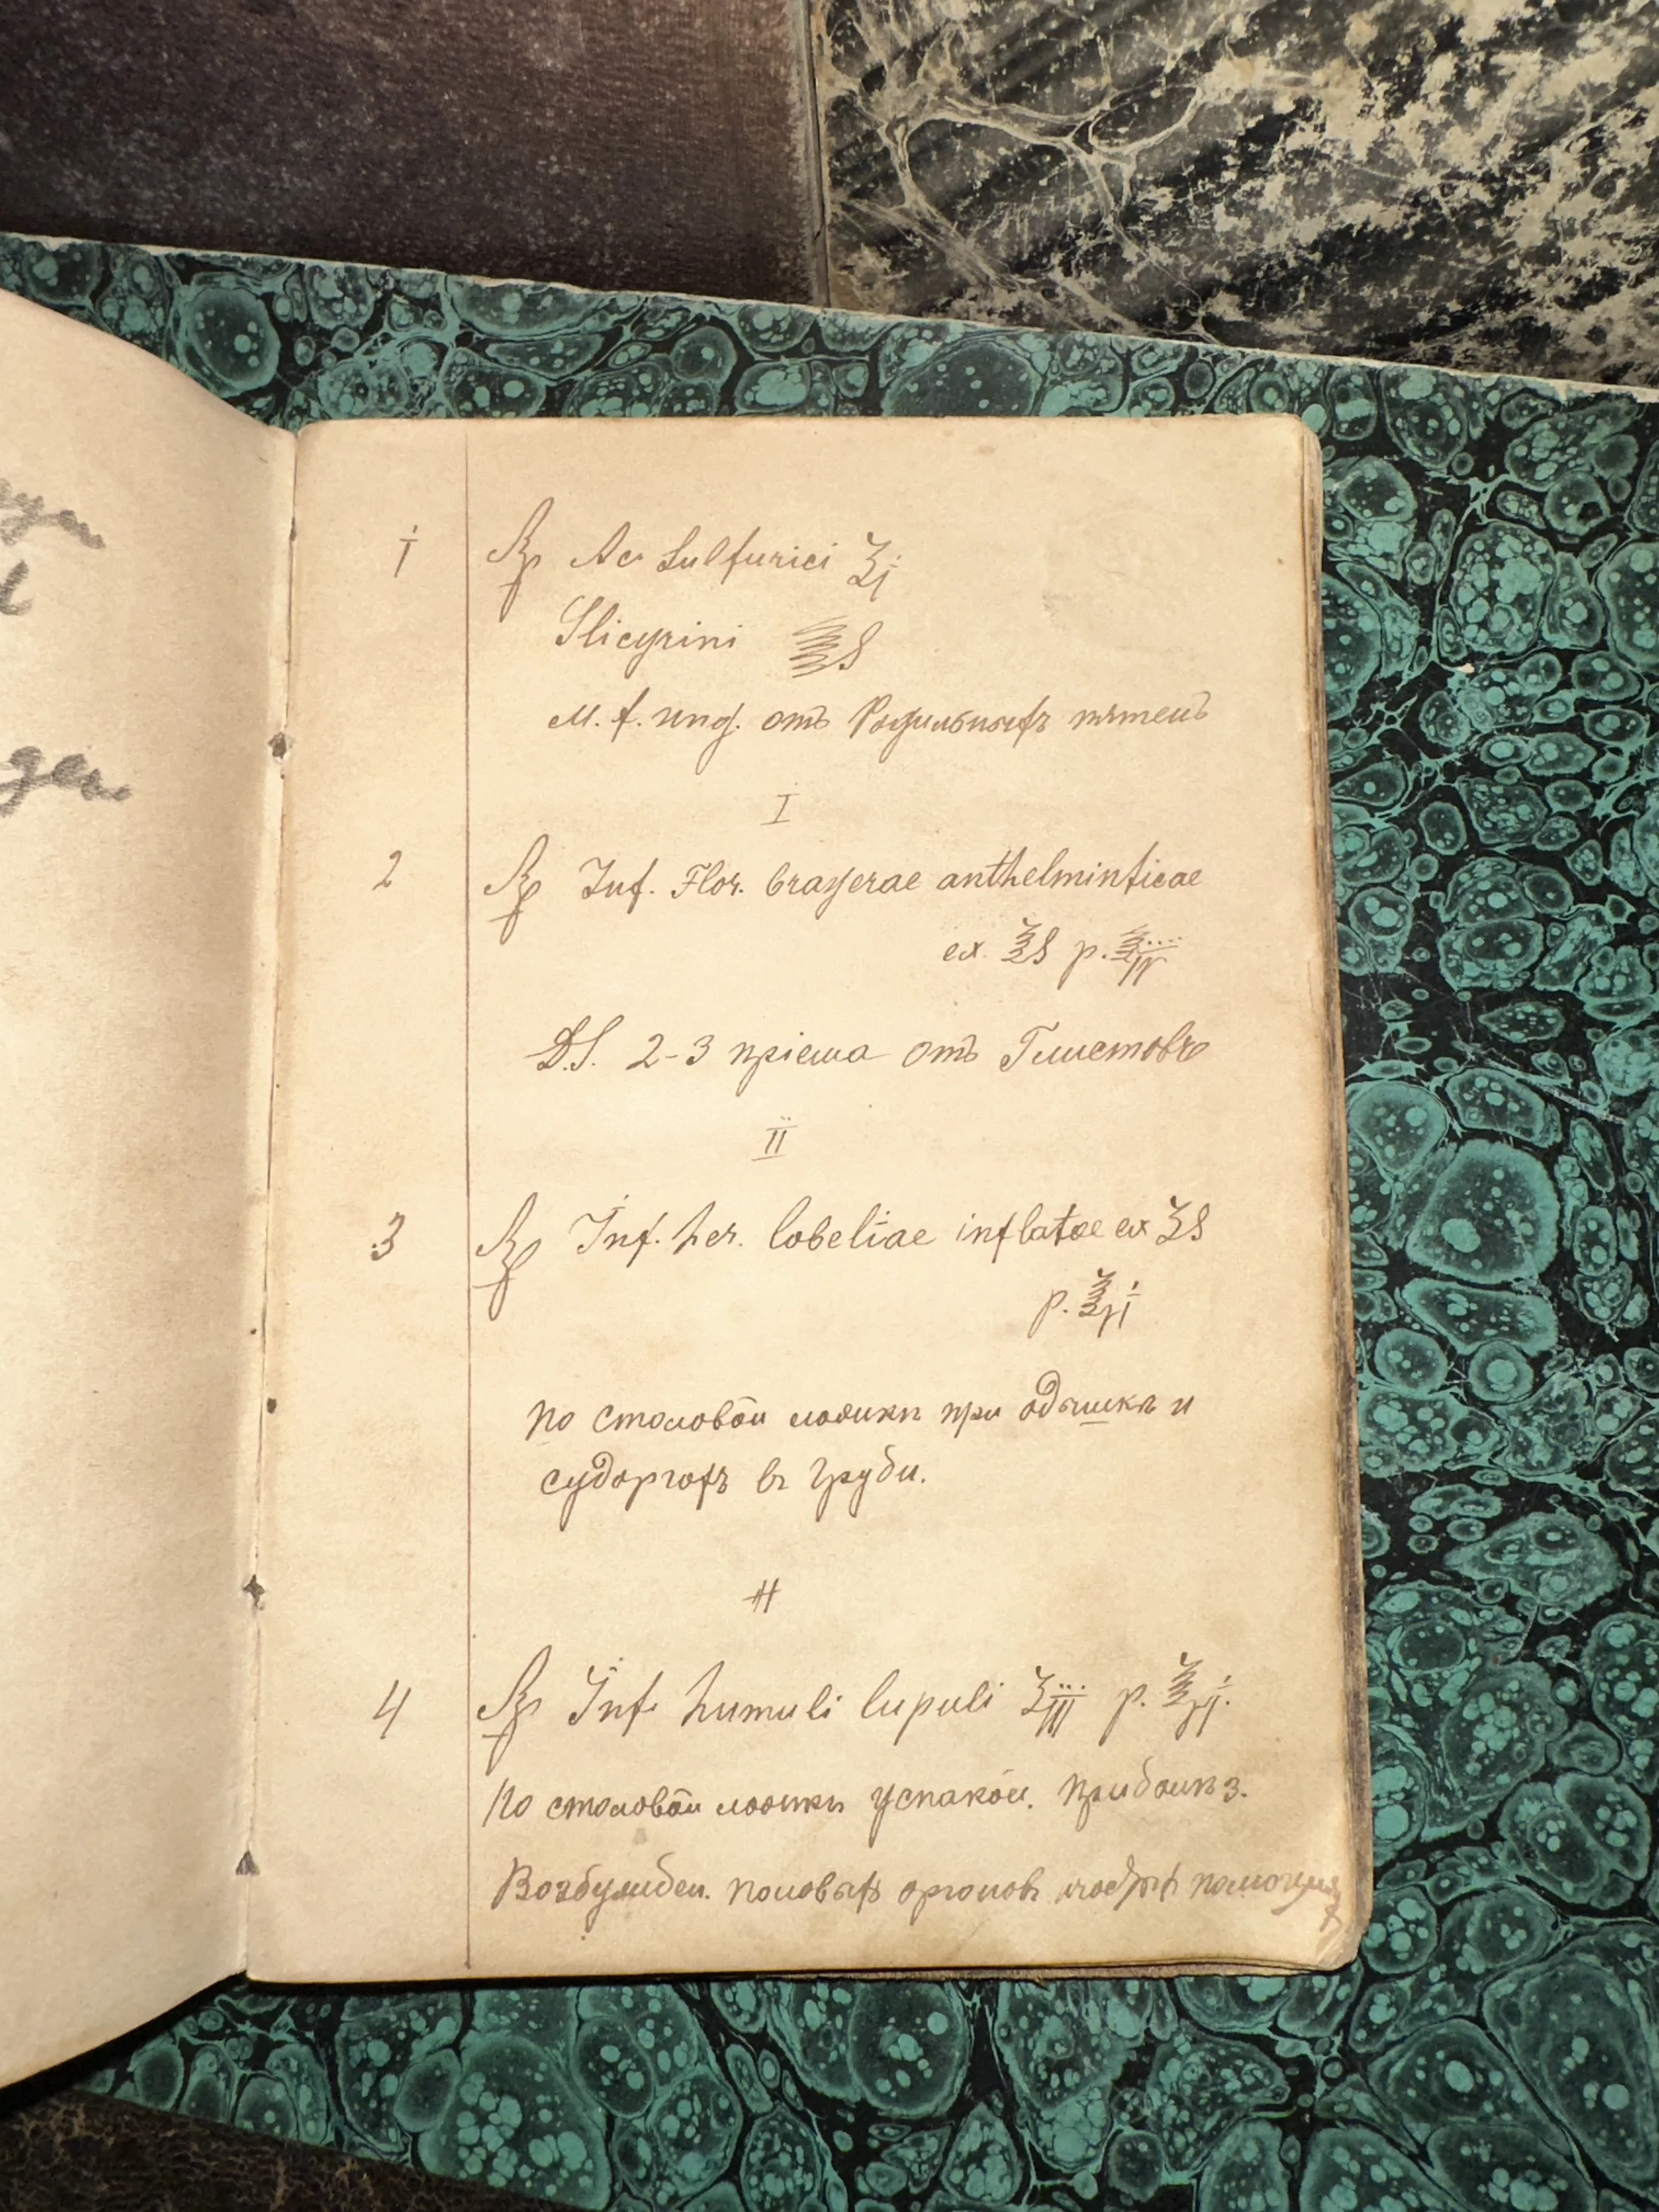 1 ℞ Ac Sulfurici ʒj
Glicyrini ℥S
M. f. ung. отъ Родильныхъ пятенъ
I
2 ℞ Inf. Flor. brayerae anthelminticae
ex. ℥S p. ℥IV
D.S. 2-3 прiема отъ Глистовъ
II
3 ℞ Inf. her. lobeliae inflatae ex ʒS
p. ℥vj
по столовой ложкѣ при одышкѣ и
судоргахъ въ груди.
4 ℞ Inf. humuli lupuli ʒiij p. ℥vj.
По столовой ложкѣ успакои. при болѣз.
Возбужден. половыхъ органовъ